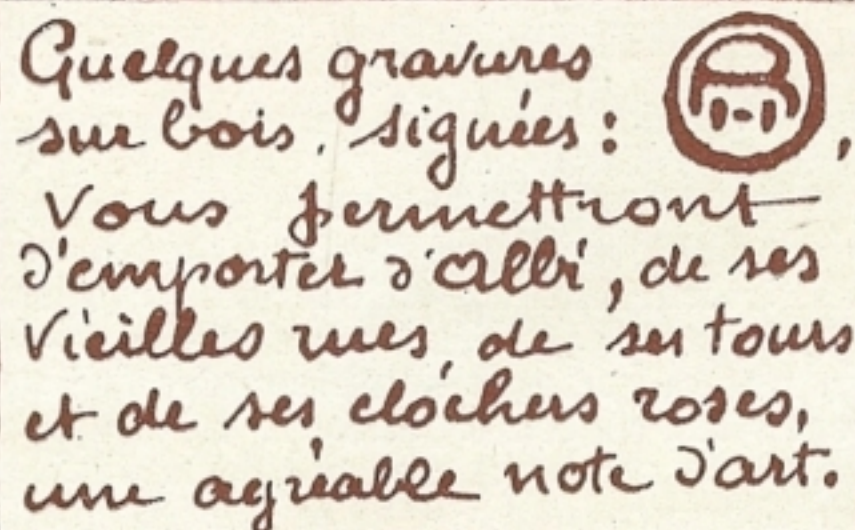 Quelques gravures
sur bois, signées : ,
Vous permettront
d'emporter d'Albi, de ses
vieilles rues, de ses tours
et de ses clochers roses,
une agréable note d'art.